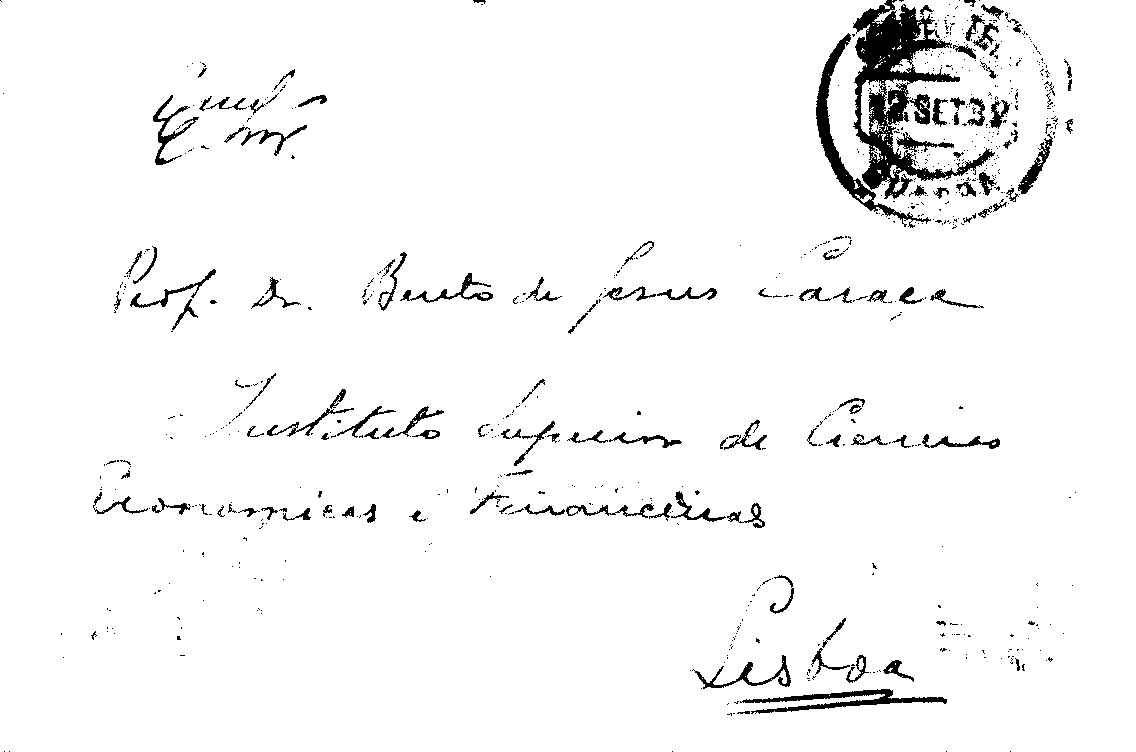 12 SET 32
Prof. Dr. Bento de Jesus Caraça
Instituto Superior de Ciencias
Economicas e Financeiras
Lisboa